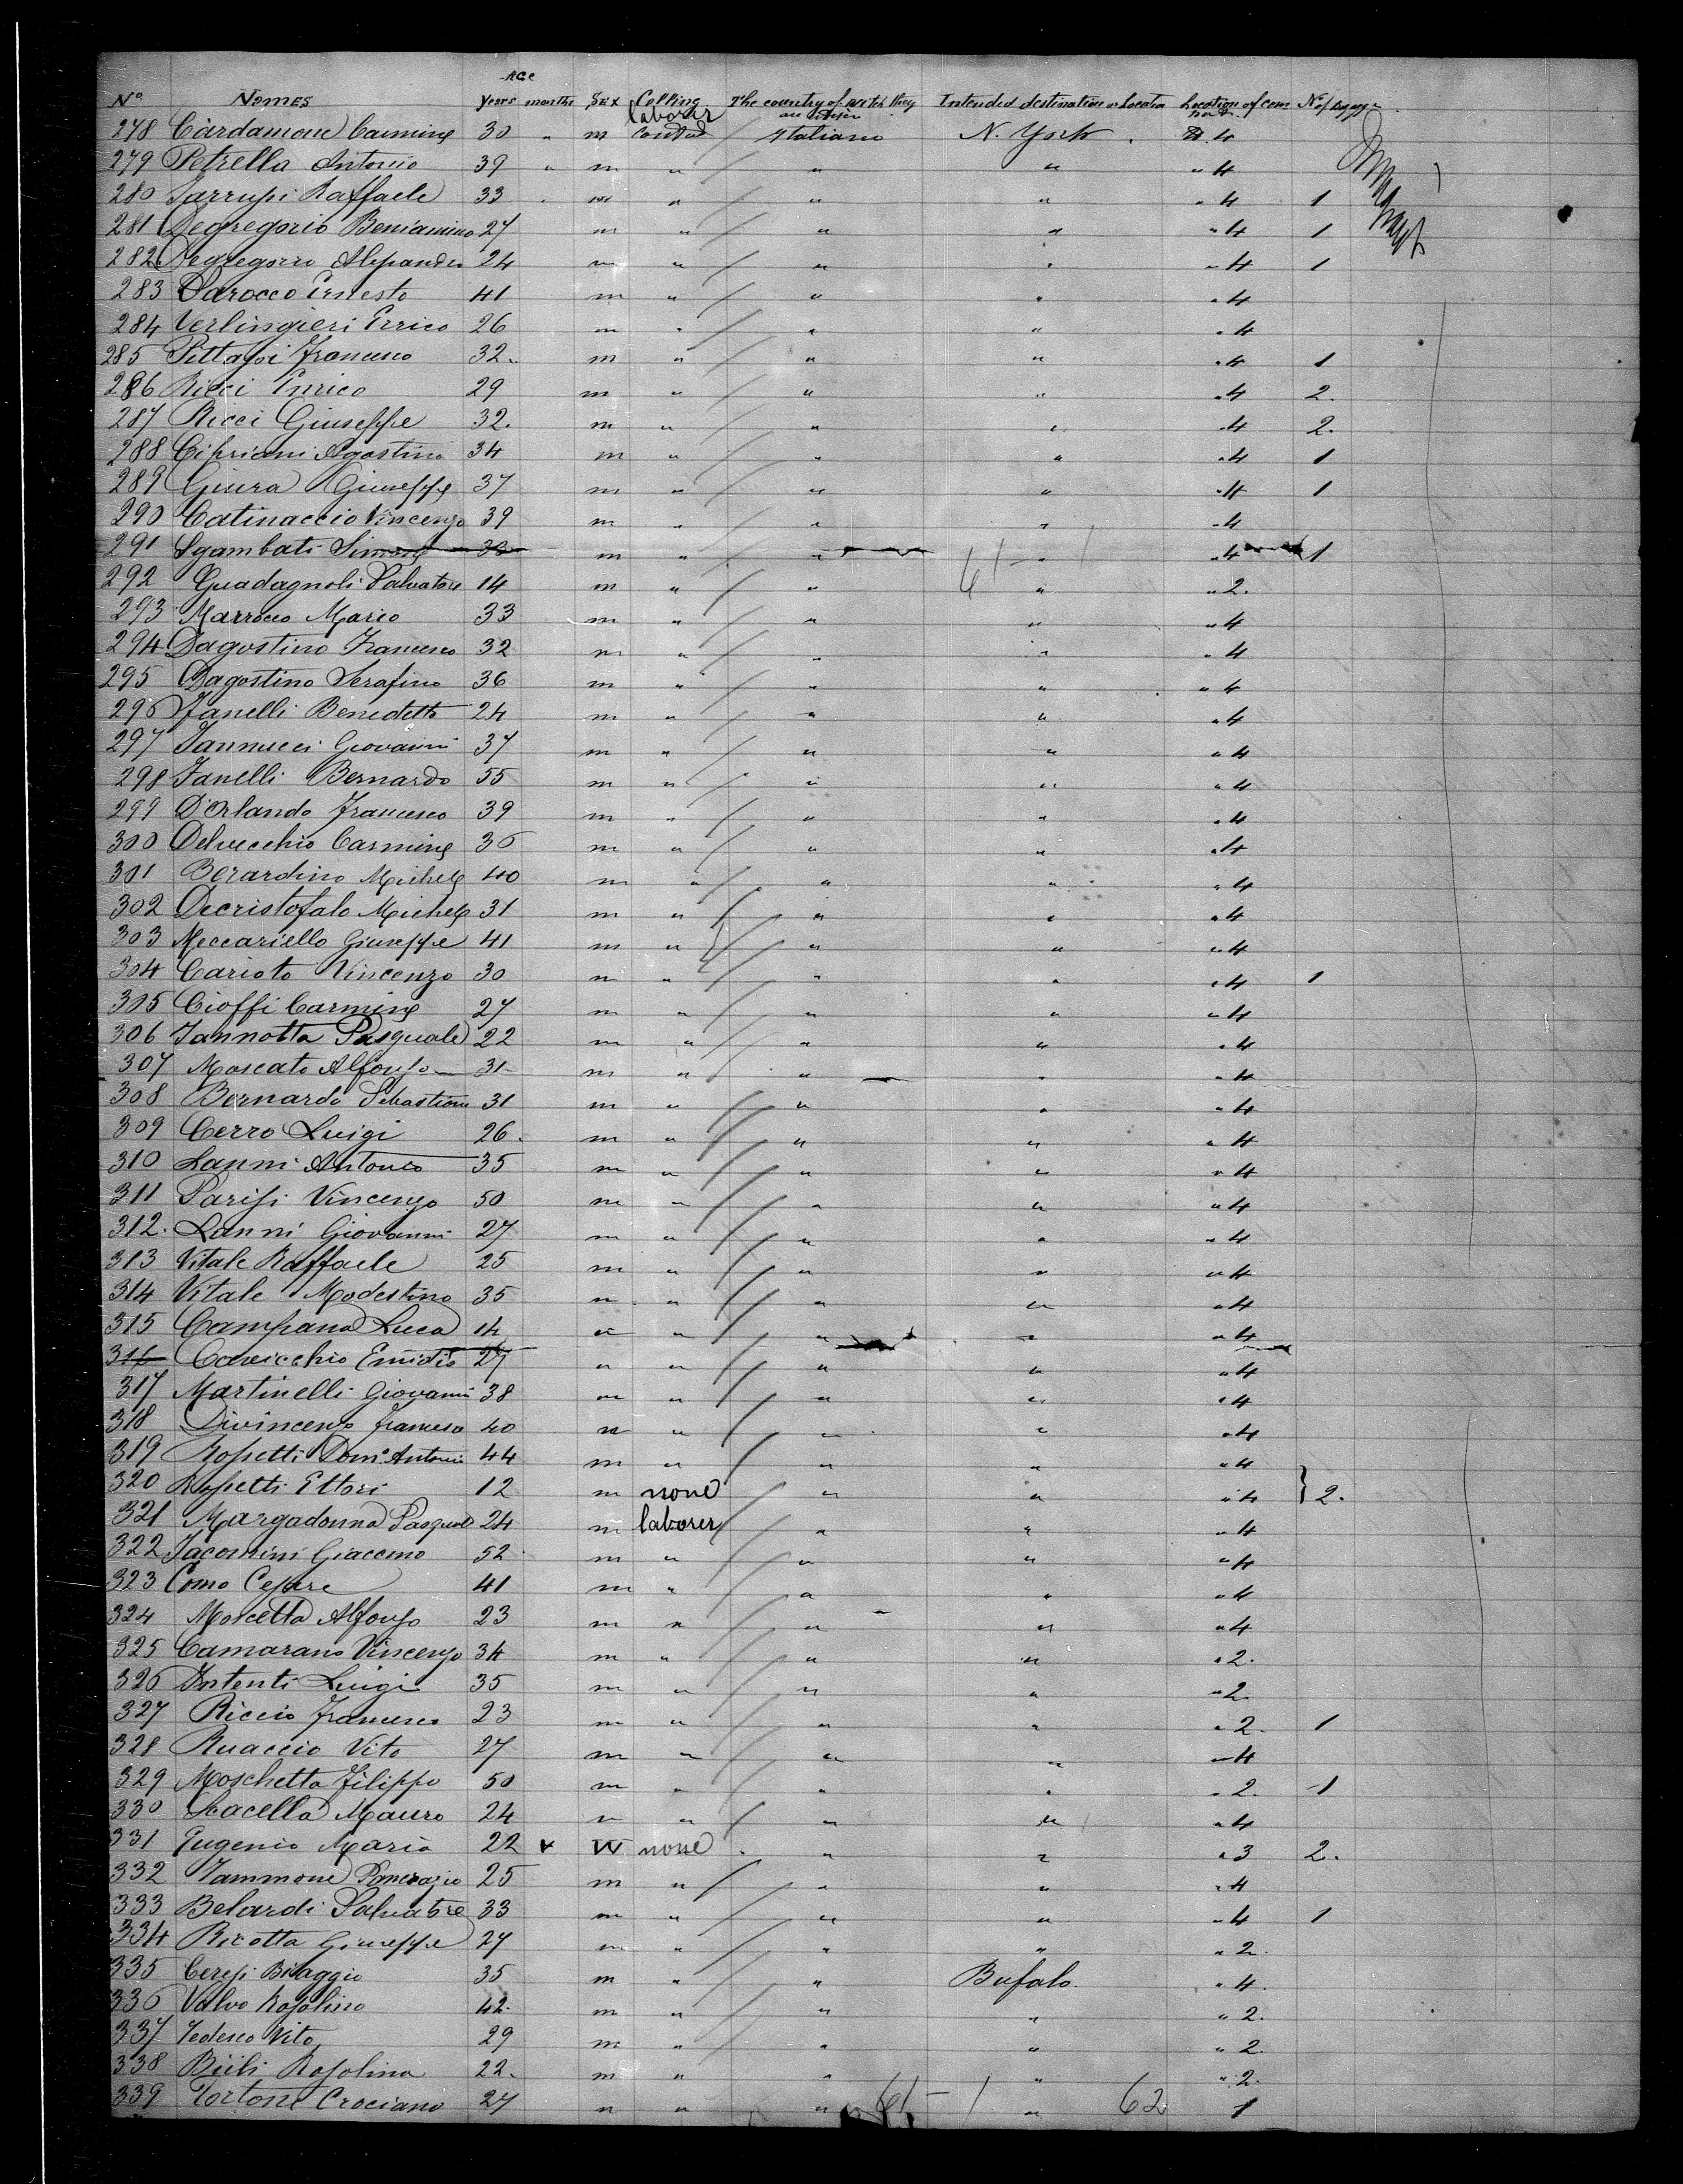 Age
No Names Years months Sex Calling The country of witch they Intended destination or Location Location of com No of
278 Cardamone Carmine 30 " m laborer Italiano N. York 4
279 Petrella Antonio 39 " m " " " " 4
280 Raffaele 33 m " " " " 4 1
281 Degregorio Beniamino 27 m " " " " 4 1
282 Degregorio 24 m " " " " 4 1
283 Darocco Ernesto 41 m " " " " 4
284 Verlingieri Errico 26 m " " " " 4
285 Francesco 32. m " " " " 4 1
286 Ricci Enrico 29 m " " " " 4 2.
287 Ricci Giuseppe 32. m " " " " 4 2.
288 Cipriani Agostino 34 m " " " " 4 1
289 Giura Giuseppe 37 m " " " " 4 1
290 Catinaccio Vincenzo 39 m " " " " 4
291 Sgambati Simone 33 m " " 61 - " " 4 1
292 Guadagnoli Salvatore 14 m " " " " 2.
293 Marrocco Mario 33 m " " " " 4
294 Dagostino Francesco 32 m " " " " 4
295 Dagostino Serafino 36 m " " " " 4
296 Janelli Benedetto 24 m " " " " 4
297 Iannucci Giovanni 37 m " " " " 4
298 Janelli Bernardo 55 m " " " " 4
299 D'Orlando Francesco 39 m " " " " 4
300 Delvecchio Carmine 36 m " " " " 4
301 Berardino Michele 40 m " " " " 4
302 Decristofalo Michele 31 m " " " " 4
303 Meccariello Giuseppe 41 m " " " " 4
304 Carioto Vincenzo 30 m " " " " 4 1
305 Cioffi Carmine 27 m " " " " 4
306 Iannotta Pasquale 22 m " " " " 4
307 Moscato Alfonso 31 m " " " " 4
308 Bernardo Sebastiano 31 m " " " " 4
309 Cerro Luigi 26. m " " " " 4
310 Lanni Antonio 35 m " " " " 4
311 Parisi Vincenzo 50 m " " " " 4
312. Lanni Giovanni 27 m " " " " 4
313 Vitale Raffaele 25 m " " " " 4
314 Vitale Modestino 35 m " " " " 4
315 Campana Luca 14 m " " " " 4
316 Cavicchio Emidio 27 " " " " " 4
317 Martinelli Giovanni 38 m " " " " 4
318 Divincenzo Francesco 40 m " " " " 4
319 Rossetti Dom. Antonio 44 m " " " " 4
320 Rossetti Ettori 12 m none " " " 4 } 2.
321 Margadonna Pasquale 24 m laborer " " " 4
322 Iacomini Giacomo 52 m " " " " 4
323 Como Cesare 41 m " " " " 4
324 Moscetta Alfonso 23 m " " " " 4
325 Camarano Vincenzo 34 m " " " " 2.
326 Intenti Luigi 35 m " " " " 2.
327 Riccio Francesco 23 m " " " " 2. 1
328 Ruaccio Vito 27 m " " " " 4
329 Moschetta Filippo 50 m " " " " 2. 1
330 Scacella Mauro 24 m " " " " 4
331 Eugenio Maria 22 v W none " " " 3 2.
332 Iammone Pancrazio 25 m " " " " 4
333 Belardi Salvatore 33 m " " " " 4 1
334 Ricotta Giuseppe 27 m " " " " 2.
335 Ceresi Biaggio 35 m " " Bufalo. " 4.
336 Valvo Rosolino 42. m " " " " 2.
337 Tedesco Vito 29 m " " " " 2.
338 Rosolino 22. m " " " " 2.
339 Tortone Crociano 27 m " " 61 - 1 " 62 1